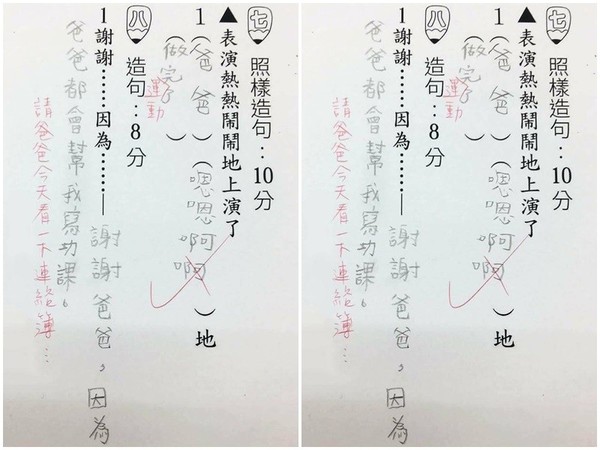 七 照樣造句：10分
▲表演熱熱鬧鬧地上演了
1（爸爸）（嗯嗯啊啊）地
（做完了）
運動
八 造句：8分
1謝謝……因為……—謝謝爸爸，因為
爸爸都會幫我寫功課。
請爸爸今天看一下連絡簿…
七 照樣造句：10分
▲表演熱熱鬧鬧地上演了
1（爸爸）（嗯嗯啊啊）地
（做完了）
運動
八 造句：8分
1謝謝……因為……—謝謝爸爸，因為
爸爸都會幫我寫功課。
請爸爸今天看一下連絡簿…